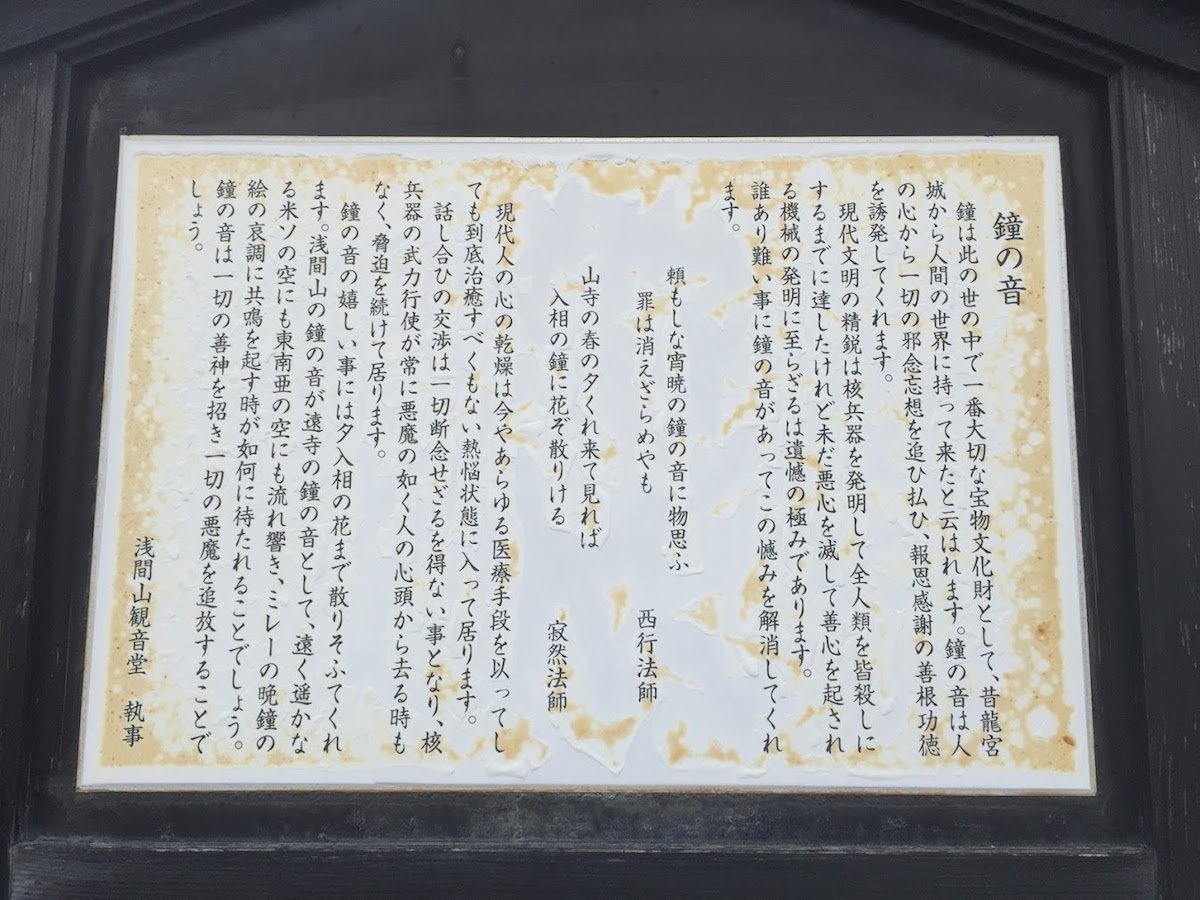 鐘の音
鐘は此の世の中で一番大切な宝物文化財として、昔龍宮
城から人間の世界に持って来たと云はれます。鐘の音は人
の心から一切の邪念忘想を追ひ払ひ、報恩感謝の善根功徳
を誘発してくれます。
現代文明の精鋭は核兵器を発明して全人類を皆殺しに
するまでに達したけれど未だ悪心を滅して善心を起され
る機械の発明に至らざるは遺憾の極みであります。
誰あり難い事に鐘の音があってこの憾みを解消してくれ
ます。
頼もしな宵暁の鐘の音に物思ふ
罪は消えざらめやも 西行法師
山寺の春の夕くれ来て見れば
入相の鐘に花ぞ散りける 寂然法師
現代人の心の乾燥は今やあらゆる医療手段を以ってし
ても到底治癒すべくもない熱悩状態に入って居ります。
話し合ひの交渉は一切断念せざるを得ない事となり、核
兵器の武力行使が常に悪魔の如く人の心頭から去る時も
なく、脅迫を続けて居ります。
鐘の音の嬉しい事には夕入相の花まで散りそふてくれ
ます。浅間山の鐘の音が遠寺の鐘の音として、遠く遥かな
る米ソの空にも東南亜の空にも流れ響き、ミレーの晩鐘の
絵の哀調に共鳴を起す時が如何に待たれることでしょう。
鐘の音は一切の善神を招き一切の悪魔を追放することで
しょう。
浅間山観音堂 執事